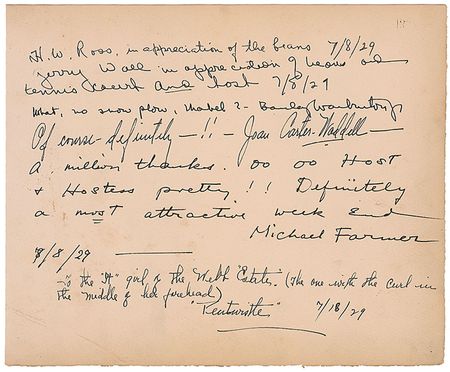 H. W. Ross, in appreciation of the beans 7/8/29
Jerry Wall in appreciation of beans and
tennis court and host 7/8/29
What, no snow plow, Mabel? - Barclay Warburton Jr
Of course - definitely - !! - Joan Carter-Waddell -
A million thanks. oo oo Host
+ Hostess pretty !! Definitely
a most attractive week end
Michael Farmer
8/8/29
To the "It" girl of the Webb Estates. (The one with the curl in
the middle of her forehead)
"Pentwistle" 7/18/29